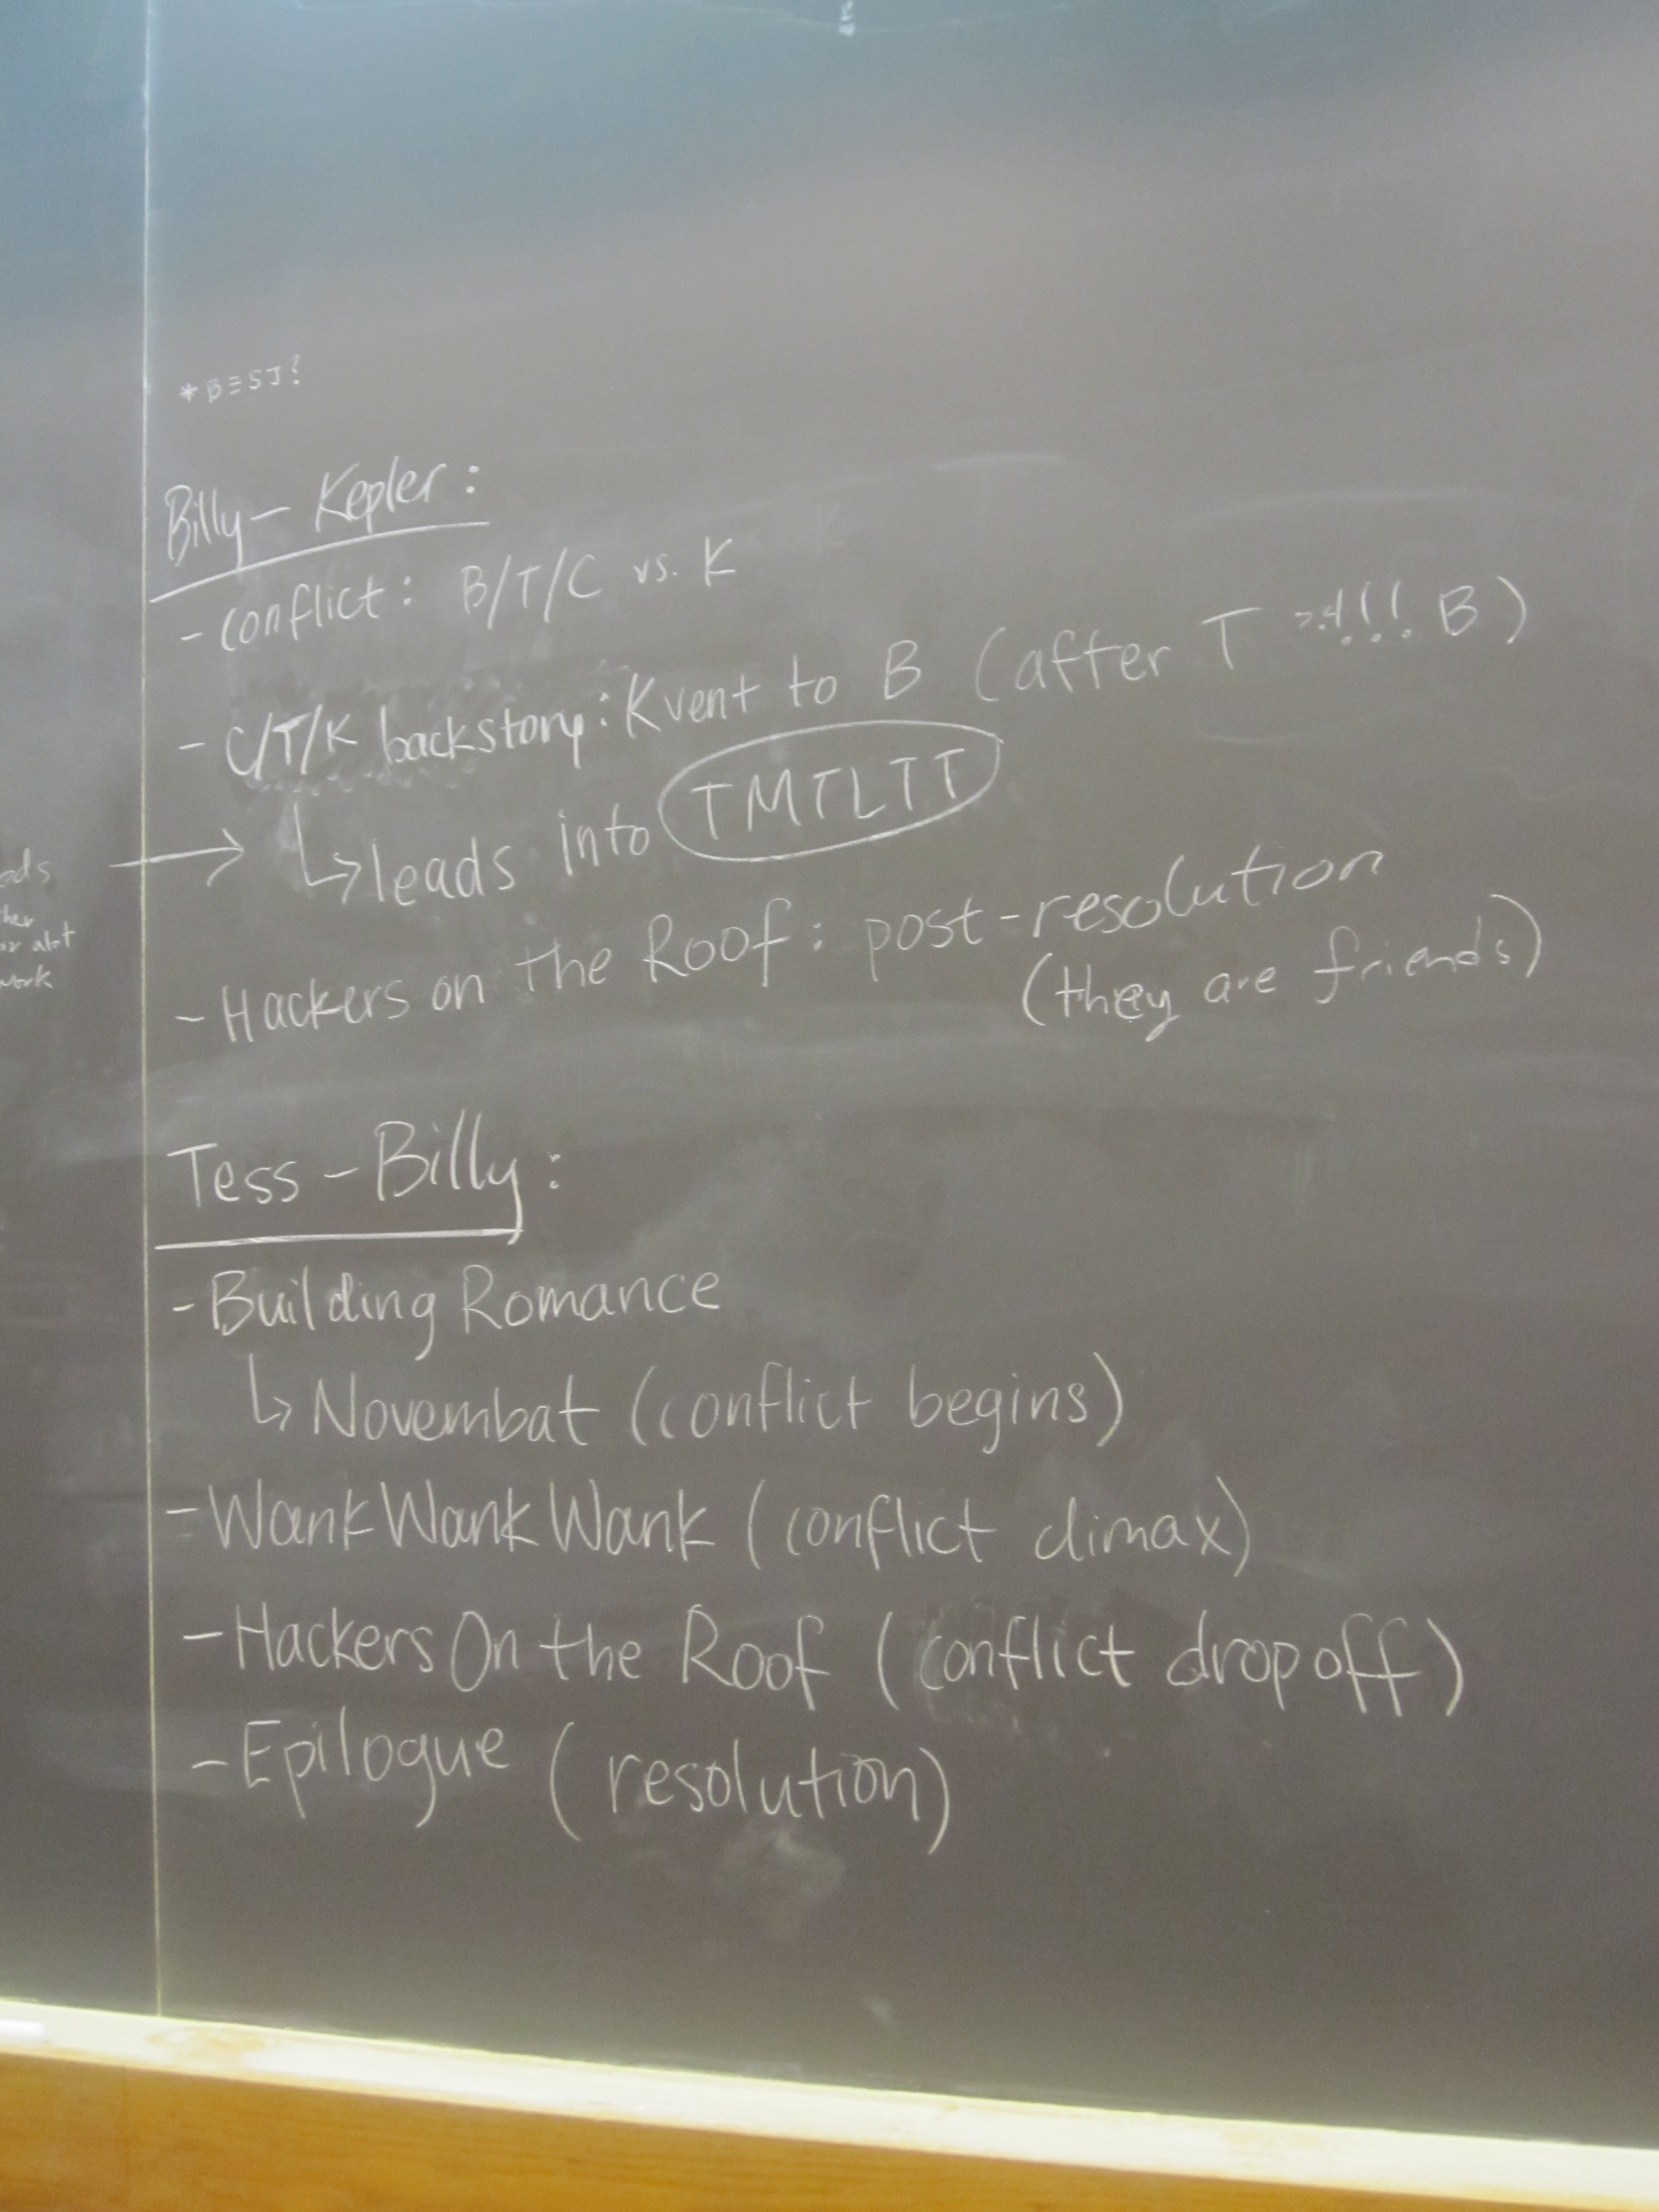 *BEST?
Billy - Kepler:
- conflict: B/T/C vs. K
- C/T/K backstory: K vent to B (after T >:4!!! B)
→ ↳ leads into TMTLTT
- Hackers on the Roof: post-resolution
(they are friends)
alot
work
Tess - Billy:
- Building Romance
↳ Novembat (conflict begins)
- Wank Wank Wank (conflict climax)
- Hackers On the Roof (conflict dropoff)
- Epilogue (resolution)